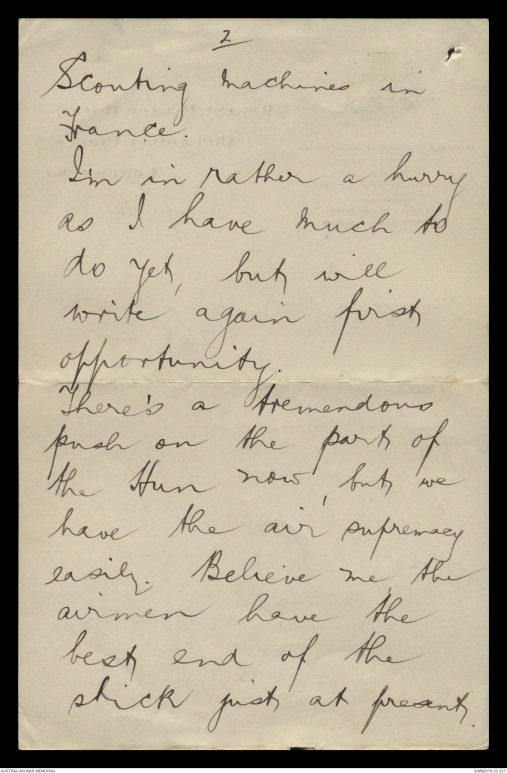 2
Scouting machines in
France.
I'm in rather a hurry
as I have much to
do yet, but will
write again first
opportunity.
There's a tremendous
push on the part of
the Hun now, but we
have the air supremacy
easily. Believe me, the
airmen have the
best end of the
stick just at present.
AUSTRALIAN WAR MEMORIAL